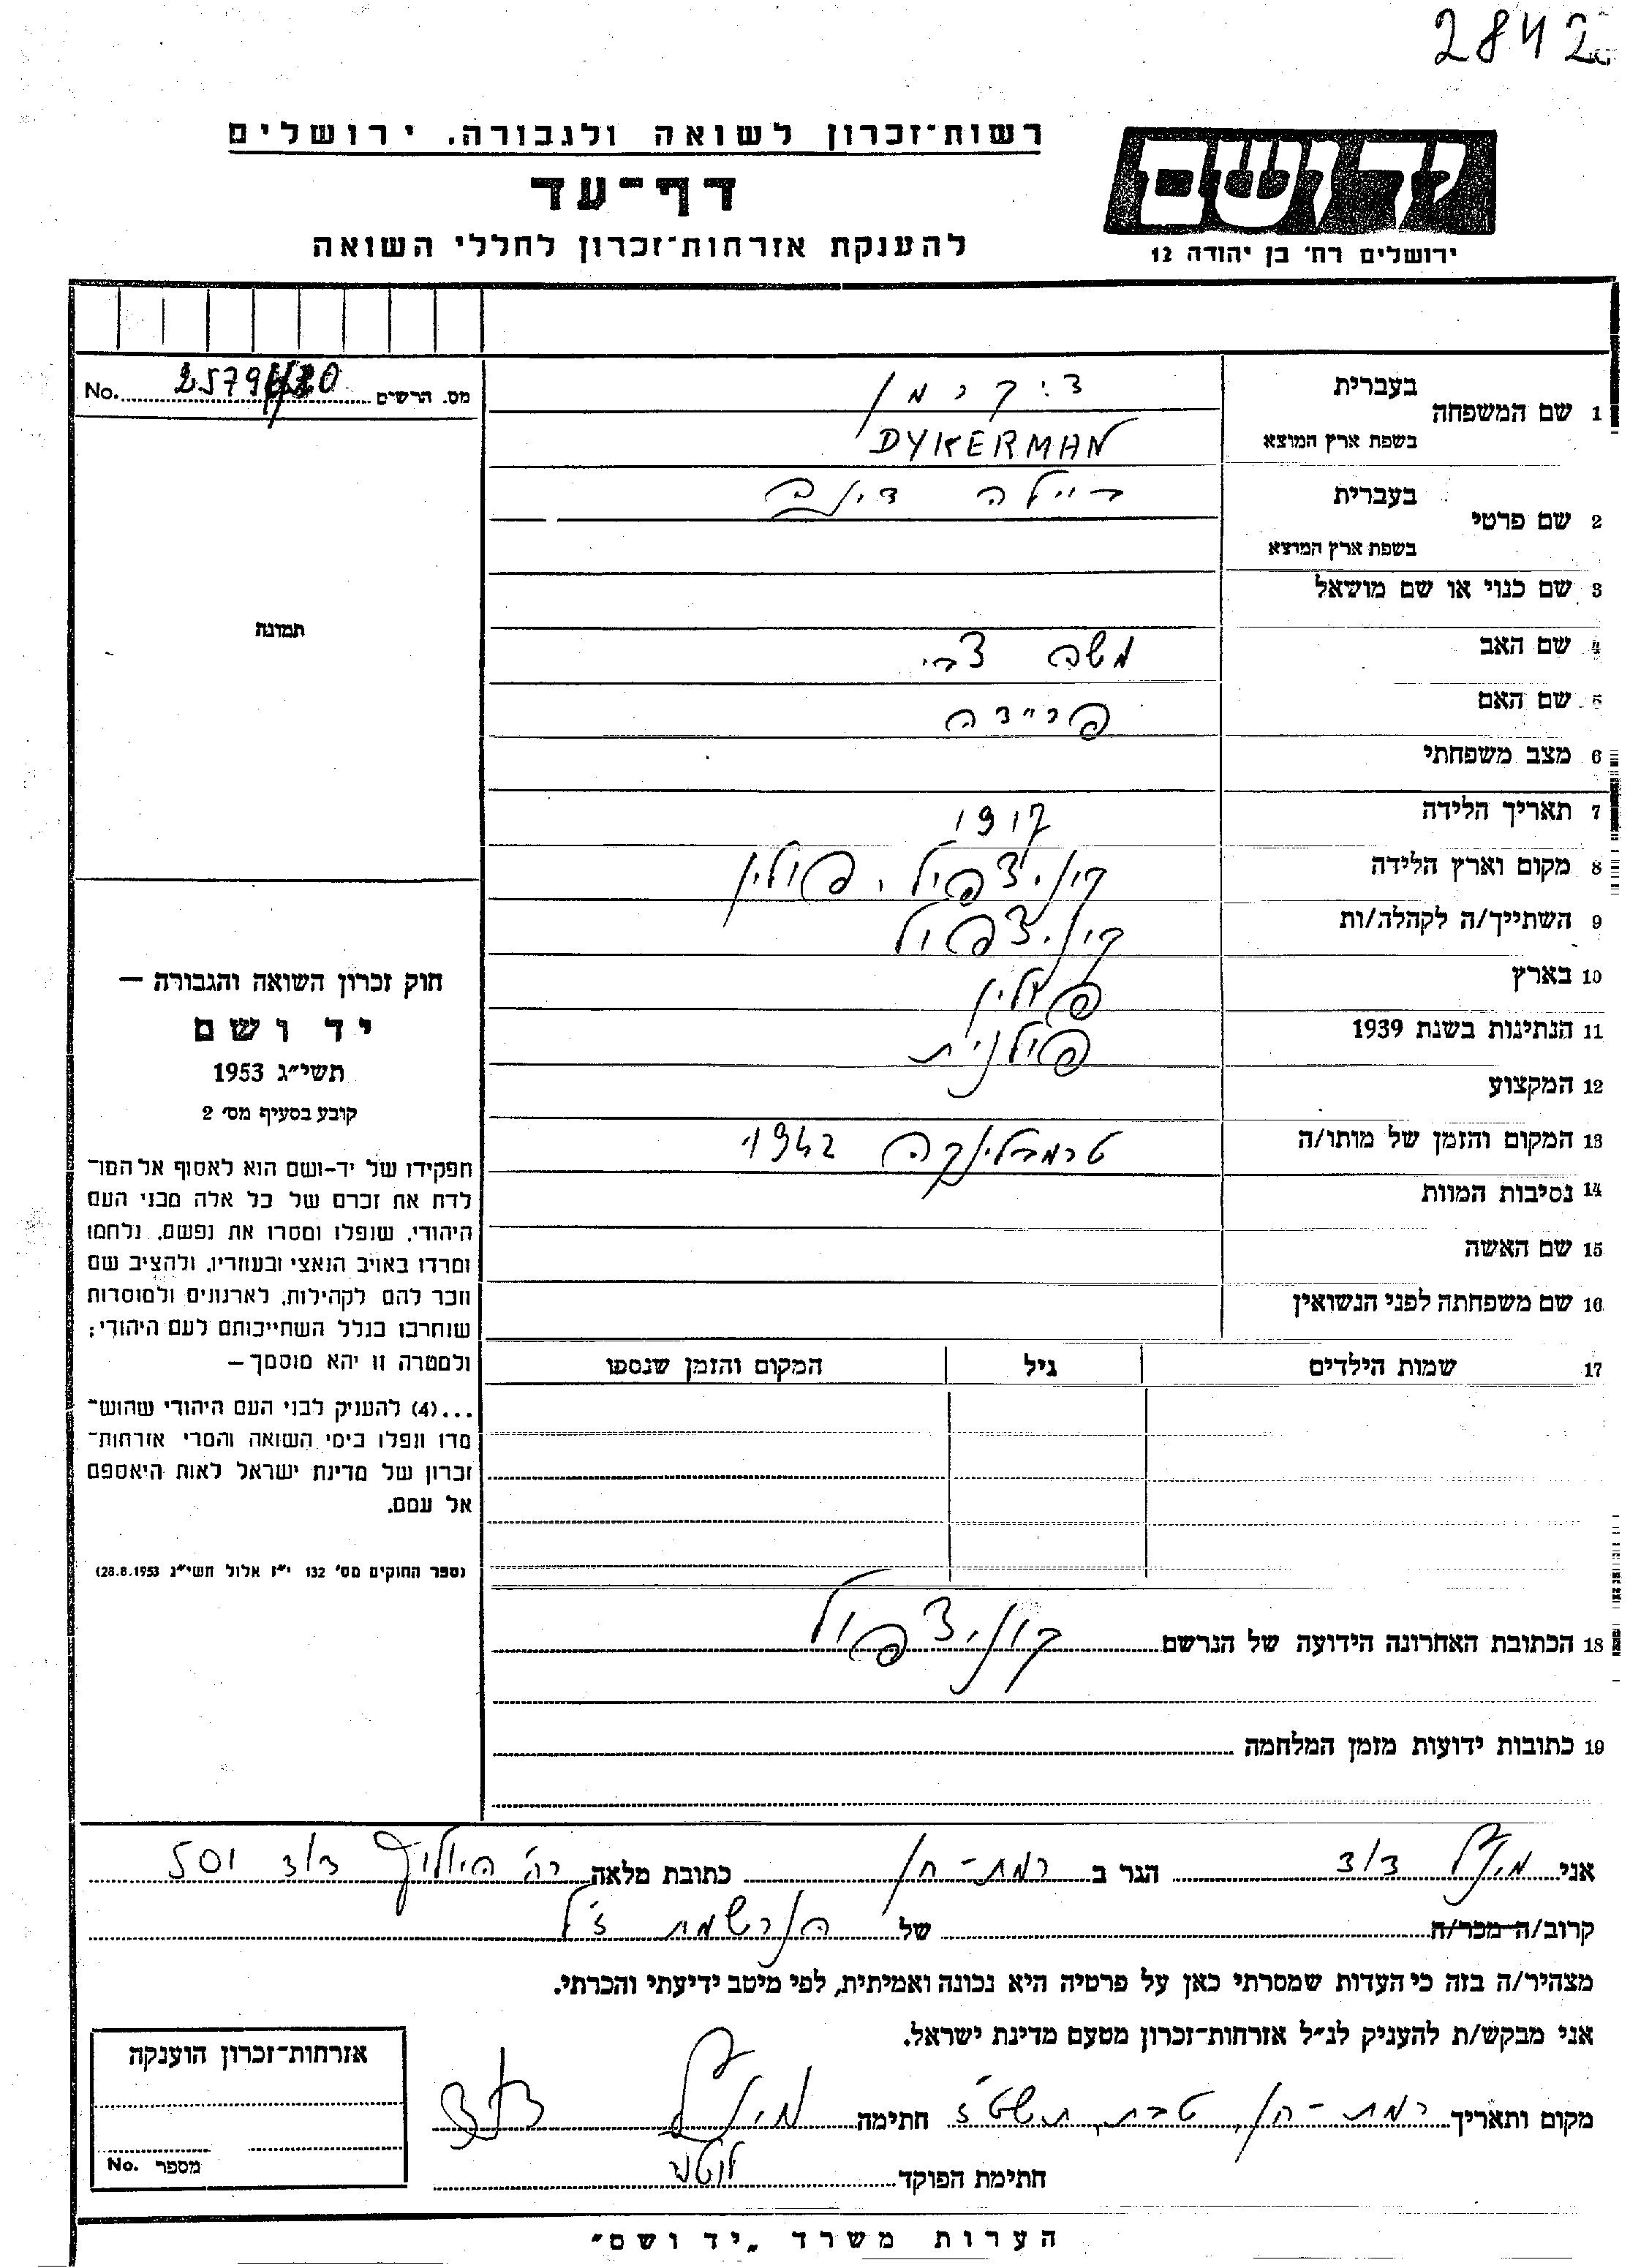 2842
רשות־זכרון לשואה ולגבורה. ירושלים
דף־עד
להענקת אזרחות־זכרון לחללי השואה
יד ושם
ירושלים רח' בן יהודה 12
No. 2579 מס. הרשים
1 שם המשפחה
בעברית דיקרמן
בשפת ארץ המוצא DYKERMAN
2 שם פרטי
בעברית ביילה
בשפת ארץ המוצא
3 שם כנוי או שם מושאל
4 שם האב משה צבי
5 שם האם פריידה
6 מצב משפחתי
7 תאריך הלידה 1917
8 מקום וארץ הלידה קונ.צפול, פולין
9 השתייך/ה לקהלה/ות קונ.צפול
10 בארץ פולין
11 הנתינות בשנת 1939 פולנית
12 המקצוע
13 המקום והזמן של מותו/ה טרמבלינקה 1942
14 נסיבות המוות
15 שם האשה
16 שם משפחתה לפני הנשואין
17 שמות הילדים גיל המקום והזמן שנספו
18 הכתובת האחרונה הידועה של הנרשם קונ.צפול
19 כתובות ידועות מזמן המלחמה
תמונה
חוק זכרון השואה והגבורה —
יד ושם
תשי״ג 1953
קובע בסעיף מס' 2
תפקידו של יד־ושם הוא לאסוף אל המו־
לדת את זכרם של כל אלה מבני העם
היהודי, שנפלו ומסרו את נפשם, נלחמו
ומרדו באויב הנאצי ובעוזריו, ולהציב שם
וזכר להם לקהילות, לארגונים ולמוסדות
שנחרבו בגלל השתייכותם לעם היהודי;
ולמטרה זו יהא מוסמך —
...(4) להענין לבני העם היהודי שהוש־
מדו ונפלו בימי השואה והמרי אזרחות־
זכרון של מדינת ישראל לאות היאספם
אל עמם.
(ספר החוקים מס' 132 י״ז אלול תשי״ג 28.8.1953)
אני הגר ב רמת-חן כתובת מלאה רח' 501
קרוב/ה מכר/ה של הנרשמת ז"ל
מצהיר/ה בזה כי העדות שמסרתי כאן על פרטיה היא נכונה ואמיתית, לפי מיטב ידיעתי והכרתי.
אני מבקש/ת להעניק לנ״ל אזרחות־זכרון מטעם מדינת ישראל.
מקום ותאריך רמת-חן, טבת, חתימה
חתימת הפוקד
אזרחות־זכרון הוענקה
מספר No.
הערות משרד „יד ושם״